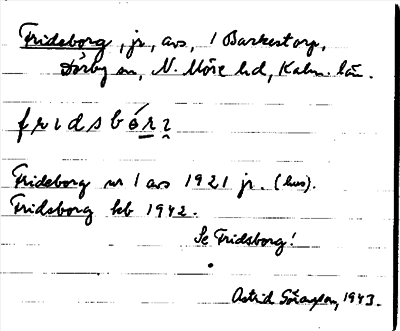 Frideborg, jr, avs, i Barkestorp,
Dörby sn, N. Möre hd, Kalm. län.
fridsbórı
Frideborg nr 1 avs 1921 jr. (hus).
Fridsborg kb 1942.
Se Fridsborg!
Astrid 1943.